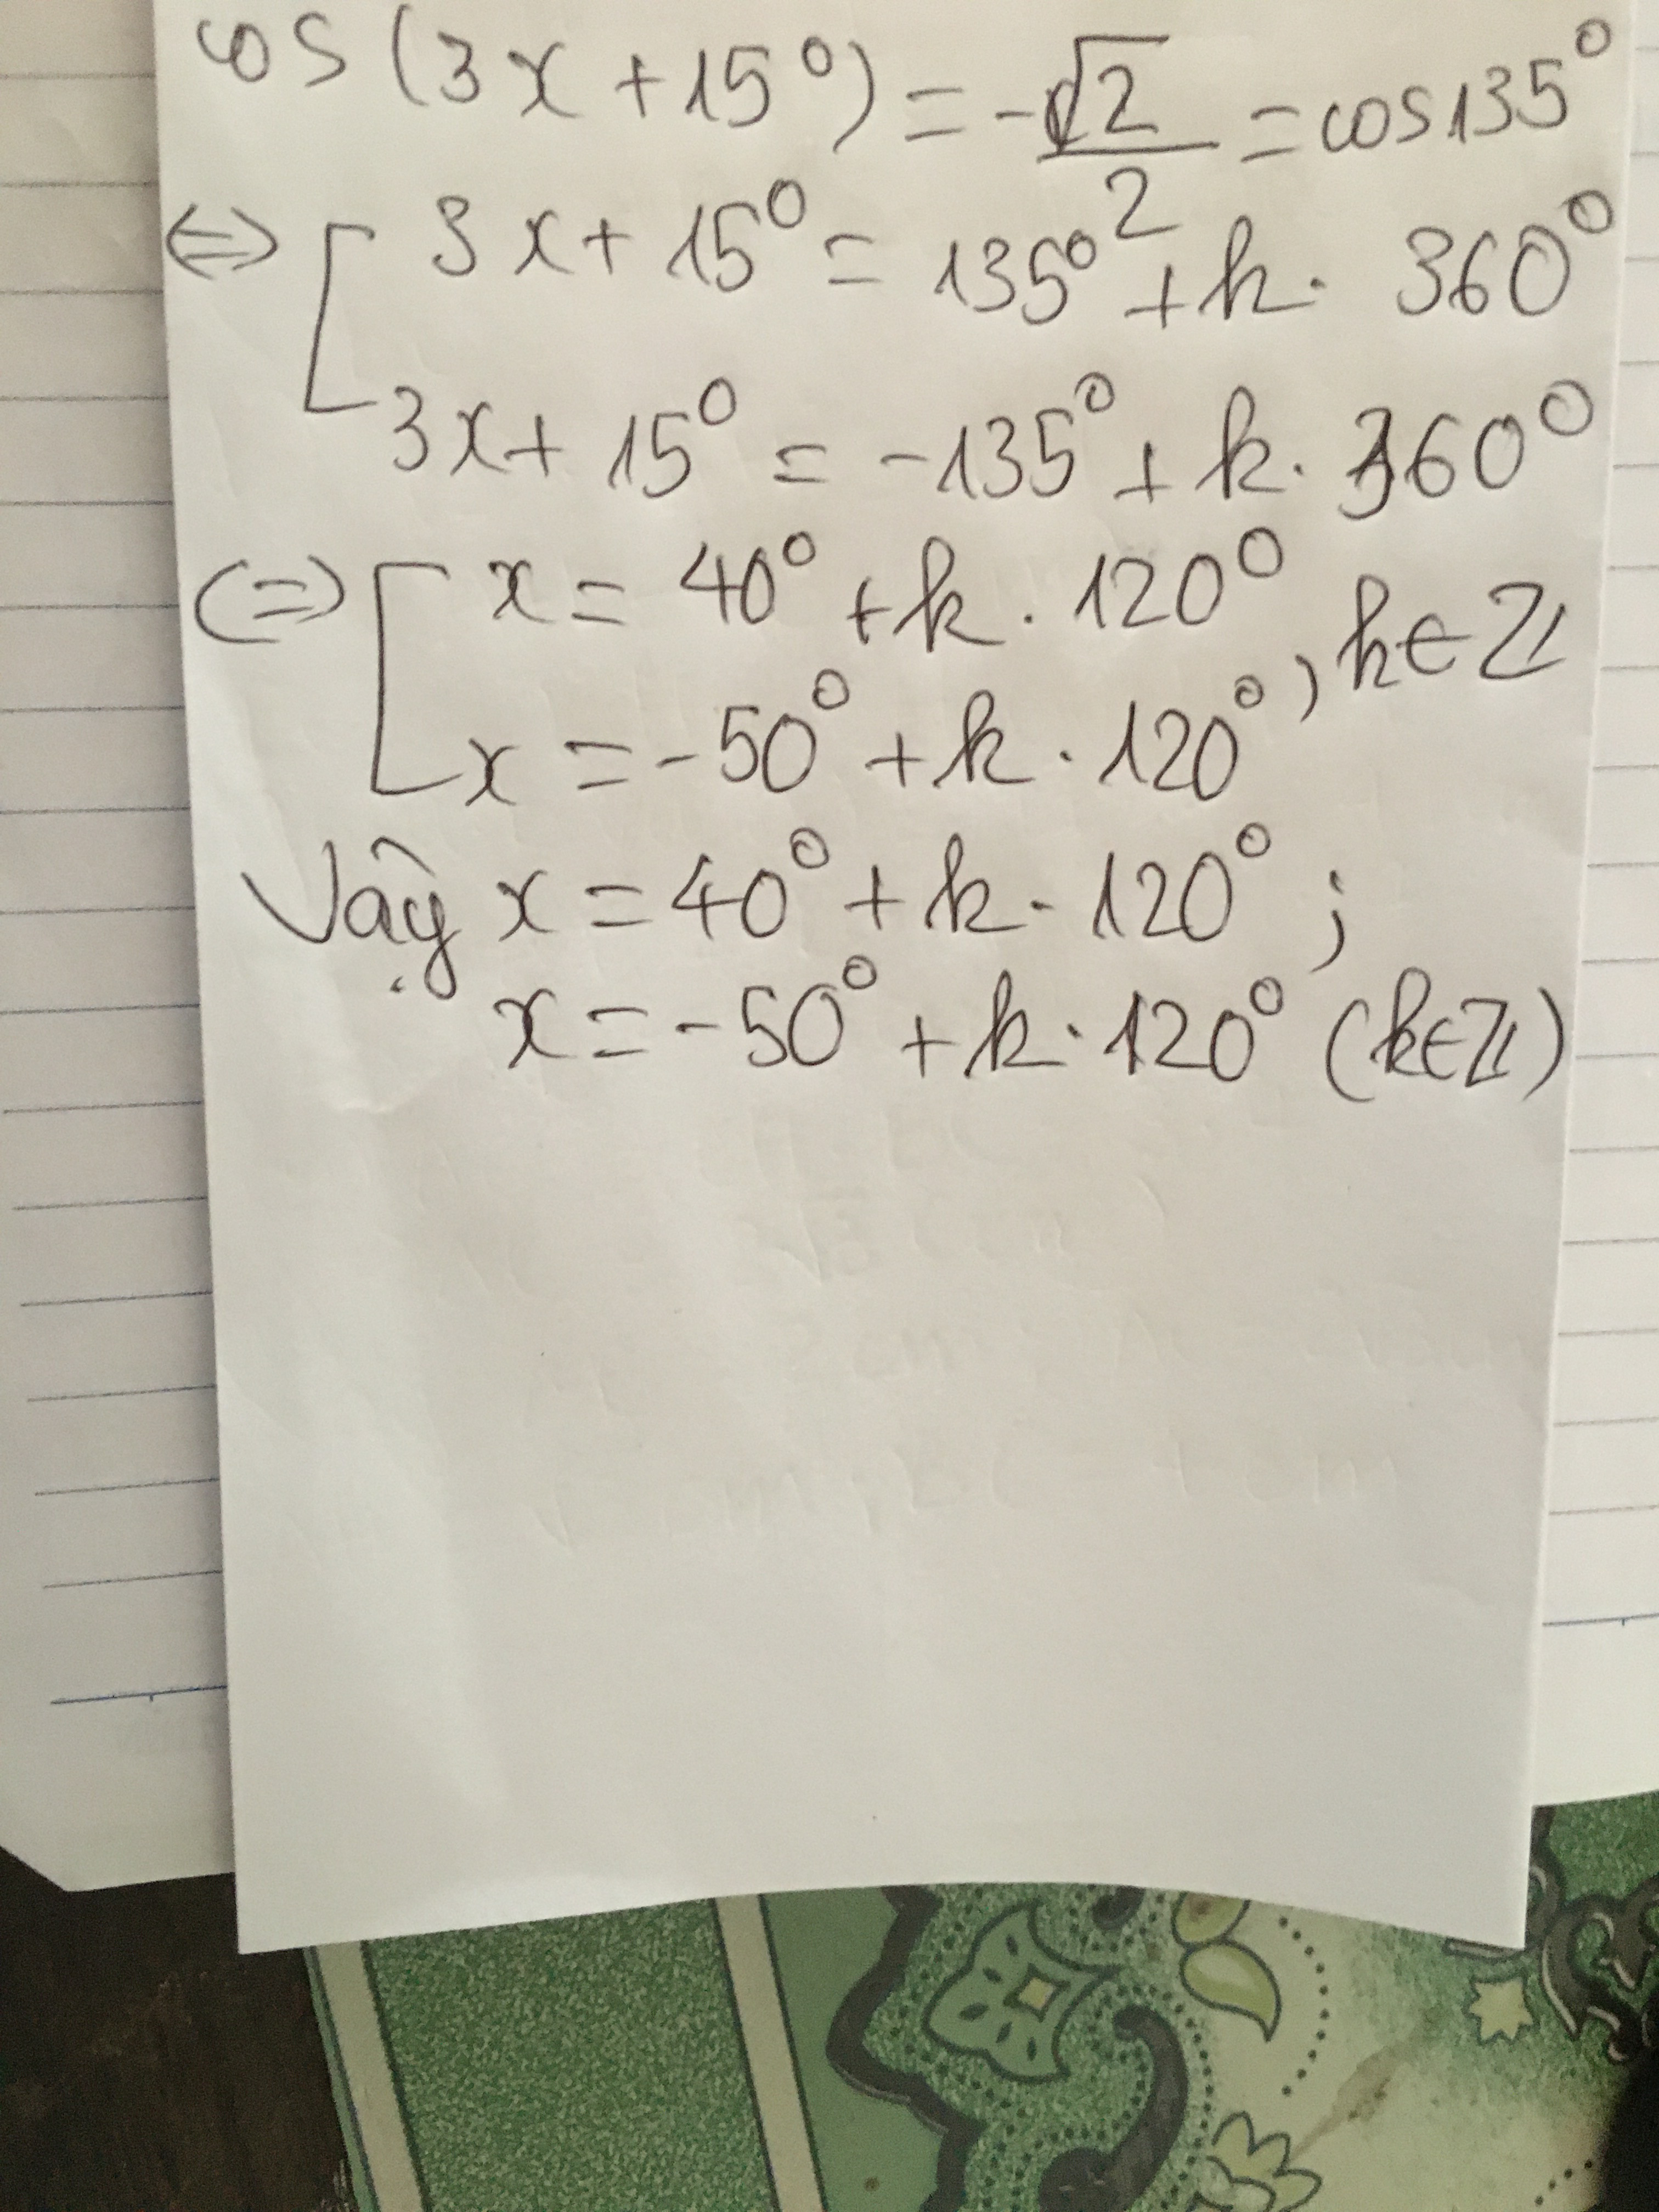 cos (3x + 15°) = -√2/2 = cos135°
⇔ [ 3x + 15° = 135° + k. 360°
3x + 15° = -135° + k. 360°
(=) [ x = 40° + k. 120°
x = -50° + k. 120° , k ∈ ℤ
Vậy x = 40° + k. 120° ;
x = -50° + k. 120° (k∈ℤ)